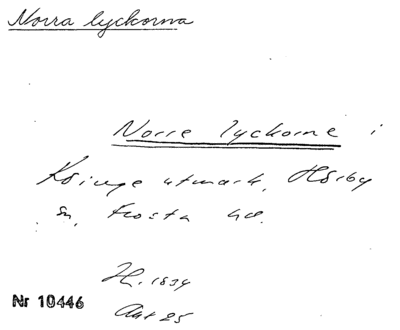 Norra lyckorna
Norre lyckorne i
Köinge utmark, Hörby
sn, Frosta hd.
H. 1834
Akt 25
Nr 10446